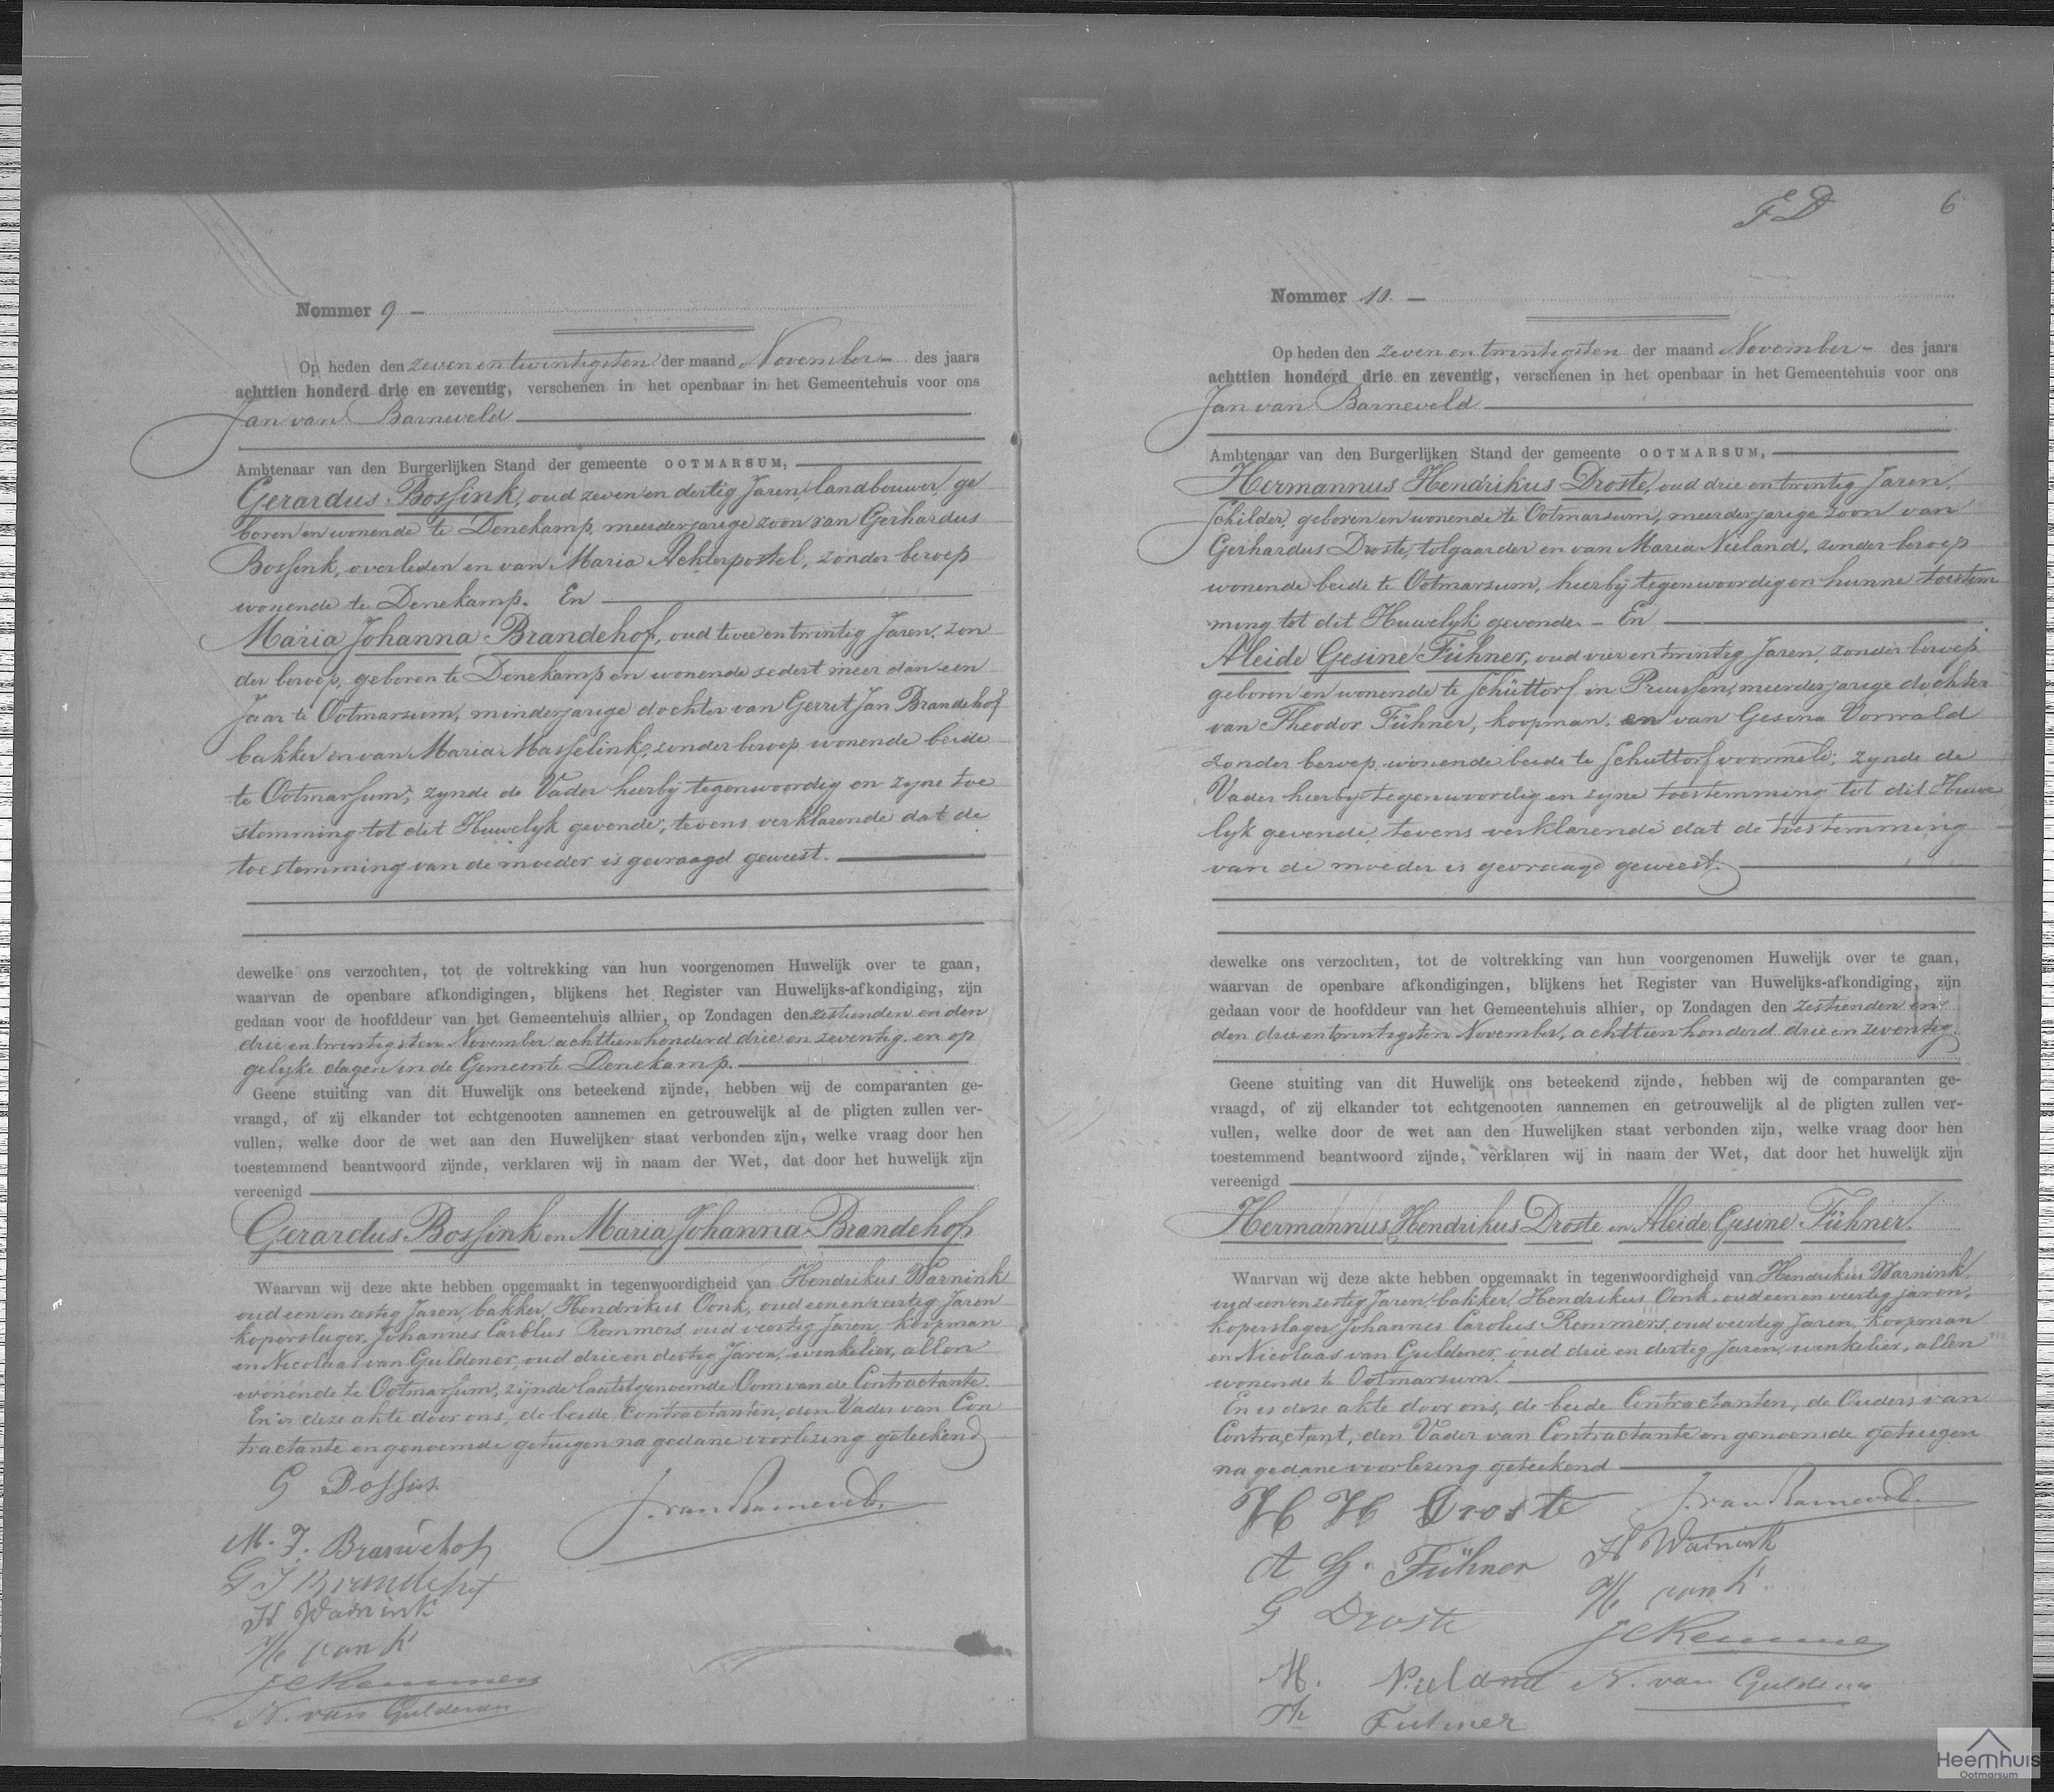 Nommer 9 —
Op heden den zeven en twintigsten der maand November – des jaars
achttien honderd drie en zeventig, verschenen in het openbaar in het Gemeentehuis voor ons
Jan van Barneveld
Ambtenaar van den Burgerlijken Stand der gemeente OOTMARSUM,
Gerardus Bossink, oud zeven en dertig Jaren, landbouwer, ge
boren en wonende te Denekamp, meerderjarige zoon van Gerhardus
Bossink, overleden en van Maria Achterpostel, zonder beroep
wonende te Denekamp. En
Maria Johanna Brandehof, oud twee en twintig Jaren, zon
der beroep, geboren te Denekamp en wonende sedert meer dan een
Jaar te Ootmarsum, minderjarige dochter van Gerrit Jan Brandehof
bakker en van Maria Masselink, zonder beroep wonende beide
te Ootmarsum, zynde de Vader hierby tegenwoordig en zyne toe
stemming tot dit Huwelyk gevende, tevens verklarende dat de
toestemming van de moeder is gevraagd geweest.
dewelke ons verzochten, tot de voltrekking van hun voorgenomen Huwelijk over te gaan,
waarvan de openbare afkondigingen, blijkens het Register van Huwelijks-afkondiging, zijn
gedaan voor de hoofddeur van het Gemeentehuis alhier, op Zondagen den zestienden en den
drie en twintigsten November achttien honderd drie en zeventig en op
gelyke dagen in de Gemeente Denekamp.
Geene stuiting van dit Huwelijk ons beteekend zijnde, hebben wij de comparanten ge-
vraagd, of zij elkander tot echtgenooten aannemen en getrouwelijk al de pligten zullen ver-
vullen, welke door de wet aan den Huwelijken staat verbonden zijn, welke vraag door hen
toestemmend beantwoord zijnde, verklaren wij in naam der Wet, dat door het huwelijk zijn
vereenigd
Gerardus Bossink en Maria Johanna Brandehof
Waarvan wij deze akte hebben opgemaakt in tegenwoordigheid van Hendrikus Warnink
oud een en zestig Jaren, bakker, Hendrikus Oonk, oud een en veertig Jaren
koperslager, Johannes Carolus Remmers, oud veertig Jaren, koopman
en Nicolaas van Guldener, oud drie en dertig Jaren, winkelier, allen
wonende te Ootmarsum, zijnde laatstgenoemde Oom van de Contractante.
En is deze akte door ons, de beide Contractanten, den Vader van Con
tractante en genoemde getuigen na gedane voorlezing geteekend
G Bossink
J. van Barneveld.
M. J. Brandehof
G J Brandehof
H Warnink
H oonk
JCRemmers
N. van Guldener
F D
6
Nommer 10. —
Op heden den zeven en twintigsten der maand November – des jaars
achttien honderd drie en zeventig, verschenen in het openbaar in het Gemeentehuis voor ons
Jan van Barneveld
Ambtenaar van den Burgerlijken Stand der gemeente OOTMARSUM,
Hermannus Hendrikus Droste, oud drie en twintig Jaren,
Schilder, geboren en wonende te Ootmarsum, meerderjarige zoon van
Gerhardus Droste, tolgaarder en van Maria Nieland, zonder beroep
wonende beide te Ootmarsum, hierbij tegenwoordig en hunne toestem
ming tot dit Huwelyk gevende. – En
Aleide Gesine Fühner, oud vier en twintig Jaren, zonder beroep
geboren en wonende te Schüttorf in Pruissen, meerderjarige dochter
van Theodor Fühner, koopman, en van Gesina Vorwald
zonder beroep, wonende beide te Schuttorf voormeld, zynde de
Vader hierby tegenwoordig en zijne toestemming tot dit Huwe
lyk gevende, tevens verklarende dat de toestemming
van de moeder is gevraagd geweest.
dewelke ons verzochten, tot de voltrekking van hun voorgenomen Huwelijk over te gaan,
waarvan de openbare afkondigingen, blijkens het Register van Huwelijks-afkondiging, zijn
gedaan voor de hoofddeur van het Gemeentehuis alhier, op Zondagen den zestienden en
den drie en twintigsten November, achttien honderd drie en zeventig.
Geene stuiting van dit Huwelijk ons beteekend zijnde, hebben wij de comparanten ge-
vraagd, of zij elkander tot echtgenooten aannemen en getrouwelijk al de pligten zullen ver-
vullen, welke door de wet aan den Huwelijken staat verbonden zijn, welke vraag door hen
toestemmend beantwoord zijnde, verklaren wij in naam der Wet, dat door het huwelijk zijn
vereenigd
Hermannus Hendrikus Droste en Aleide Gesine Fühner.
Waarvan wij deze akte hebben opgemaakt in tegenwoordigheid van Hendrikus Warnink,
oud een en zestig Jaren, bakker, Hendrikus Oonk, oud een en veertig Jaren,
koperslager, Johannes Carolus Remmers, oud veertig Jaren, koopman
en Nicolaas van Guldener, oud drie en dertig Jaren, winkelier, allen
wonende te Ootmarsum.
En is deze akte door ons, de beide Contractanten, de Ouders van
Contractant, den Vader van Contractante en genoemde getuigen
na gedane voorlezing geteekend
H H Droste
J. van Barneveld.
A G. Fühner
H Warnink
G Droste
H oonk.
JCRemmers
M. Nieland
N. van Guldener
Th Fuhner
Heemhuis
Ootmarsum